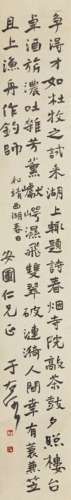 爭得才如杜牧之試來湖上輒題詩春烟寺院敲茶鼓夕照樓
臺卓酒旗濃吐雜芳薰巘崿濕飛雙翠破漣漪人間幸有蓑兼笠
且上漁舟作釣師
和靖西湖春日
安國仁兄正
于右任